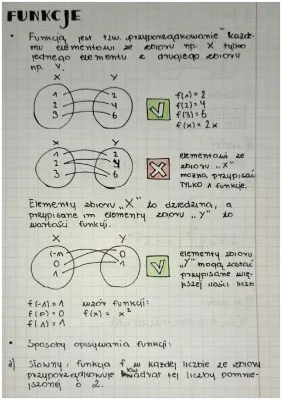 FUNKCJE
• Funkcją jest tzw. „przyporządkowanie" każde-
mu elementowi ze zbioru np. X tylko
jednego elementu z drugiego zbioru
np. Y.
X Y
1 2
2 4
3 6
f(1) = 2
f(2) = 4
f(3) = 6
f(x) = 2x
X Y
1 2
2 4
3 6
elementowi ze
zbioru „X"
można przypisać
TYLKO 1 funkcję.
Elementy zbioru „X" to dziedzina, a
przypisane im elementy zbioru „Y" to
wartości funkcji.
X Y
(-1) 0
0 1
1
elementy zbioru
„Y" mogą zostać
przypisane wię-
kszej ilości liczb
f(-1) = 1 wzór funkcji:
f(0) = 0 f(x) = x²
f(1) = 1
• Sposoby opisywania funkcji:
a) Słowny: funkcja f każdej liczbie ze zbioru
przyporządkowuje kwadrat tej liczby pomnie-
jszonej o 2.